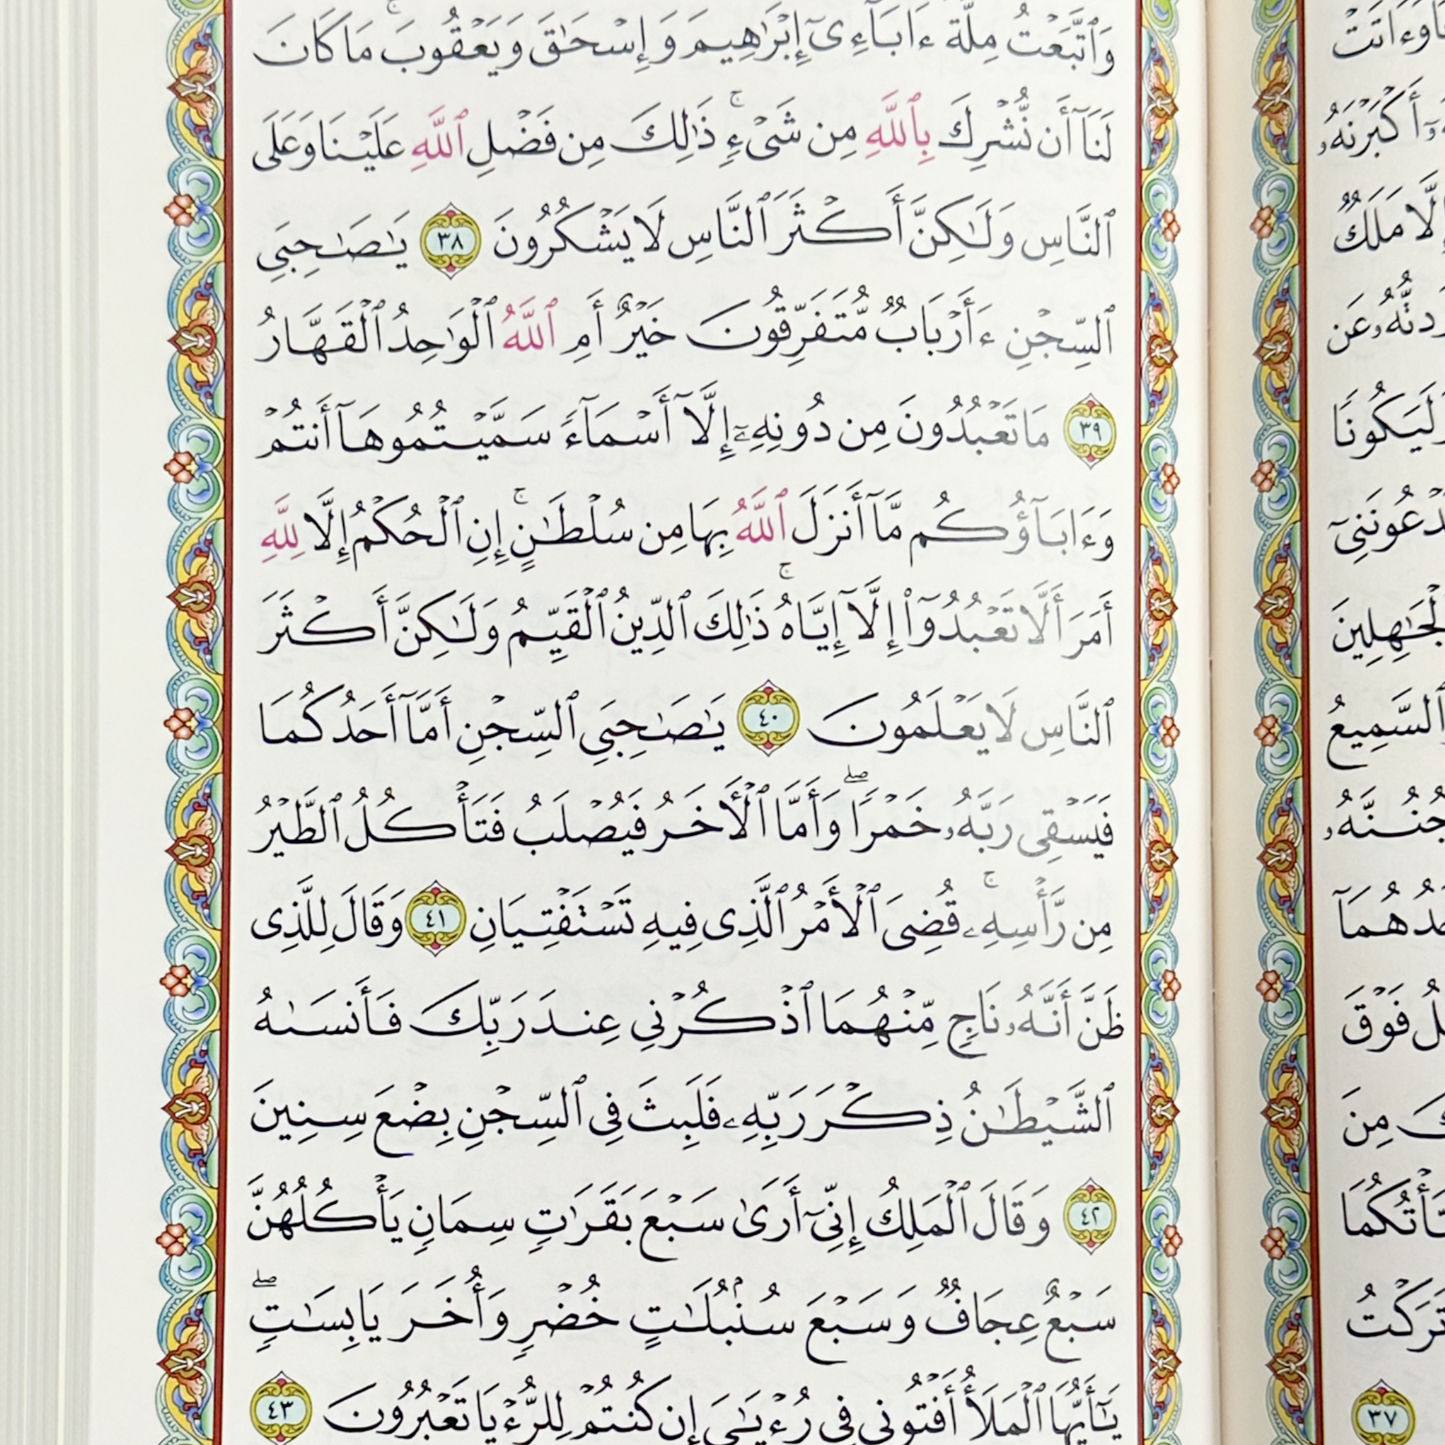 وَٱتَّبَعۡتُ مِلَّةَ ءَابَآءِيٓ إِبۡرَٰهِيمَ وَإِسۡحَٰقَ وَيَعۡقُوبَۚ مَا كَانَ
لَنَآ أَن نُّشۡرِكَ بِٱللَّهِ مِن شَيۡءٖۚ ذَٰلِكَ مِن فَضۡلِ ٱللَّهِ عَلَيۡنَا وَعَلَى
ٱلنَّاسِ وَلَٰكِنَّ أَكۡثَرَ ٱلنَّاسِ لَا يَشۡكُرُونَ ٣٨ يَٰصَٰحِبَيِ
ٱلسِّجۡنِ ءَأَرۡبَابٞ مُّتَفَرِّقُونَ خَيۡرٌ أَمِ ٱللَّهُ ٱلۡوَٰحِدُ ٱلۡقَهَّارُ
٣٩ مَا تَعۡبُدُونَ مِن دُونِهِۦٓ إِلَّآ أَسۡمَآءٗ سَمَّيۡتُمُوهَآ أَنتُمۡ
وَءَابَآؤُكُم مَّآ أَنزَلَ ٱللَّهُ بِهَا مِن سُلۡطَٰنٍۚ إِنِ ٱلۡحُكۡمُ إِلَّا لِلَّهِ
أَمَرَ أَلَّا تَعۡبُدُوٓاْ إِلَّآ إِيَّاهُۚ ذَٰلِكَ ٱلدِّينُ ٱلۡقَيِّمُ وَلَٰكِنَّ أَكۡثَرَ
ٱلنَّاسِ لَا يَعۡلَمُونَ ٤٠ يَٰصَٰحِبَيِ ٱلسِّجۡنِ أَمَّآ أَحَدُكُمَا
فَيَسۡقِي رَبَّهُۥ خَمۡرٗاۖ وَأَمَّا ٱلۡأٓخَرُ فَيُصۡلَبُ فَتَأۡكُلُ ٱلطَّيۡرُ
مِن رَّأۡسِهِۦۚ قُضِيَ ٱلۡأَمۡرُ ٱلَّذِي فِيهِ تَسۡتَفۡتِيَانِ ٤١ وَقَالَ لِلَّذِي
ظَنَّ أَنَّهُۥ نَاجٖ مِّنۡهُمَا ٱذۡكُرۡنِي عِندَ رَبِّكَ فَأَنسَىٰهُ
ٱلشَّيۡطَٰنُ ذِكۡرَ رَبِّهِۦ فَلَبِثَ فِي ٱلسِّجۡنِ بِضۡعَ سِنِينَ
٤٢ وَقَالَ ٱلۡمَلِكُ إِنِّيٓ أَرَىٰ سَبۡعَ بَقَرَٰتٖ سِمَانٖ يَأۡكُلُهُنَّ
سَبۡعٌ عِجَافٞ وَسَبۡعَ سُنۢبُلَٰتٍ خُضۡرٖ وَأُخَرَ يَابِسَٰتٖۖ
يَٰٓأَيُّهَا ٱلۡمَلَأُ أَفۡتُونِي فِي رُءۡيَٰيَ إِن كُنتُمۡ لِلرُّءۡيَا تَعۡبُرُونَ ٤٣
أَكۡبَرۡنَهُۥ
إِلَّا مَلَكٞ
عَن
وَلَيَكُونٗا
يَدۡعُونَنِيٓ
ٱلۡجَٰهِلِينَ
ٱلسَّمِيعُ
فَوۡقَ
مِنَ
تَرَكۡتُ
٣٧